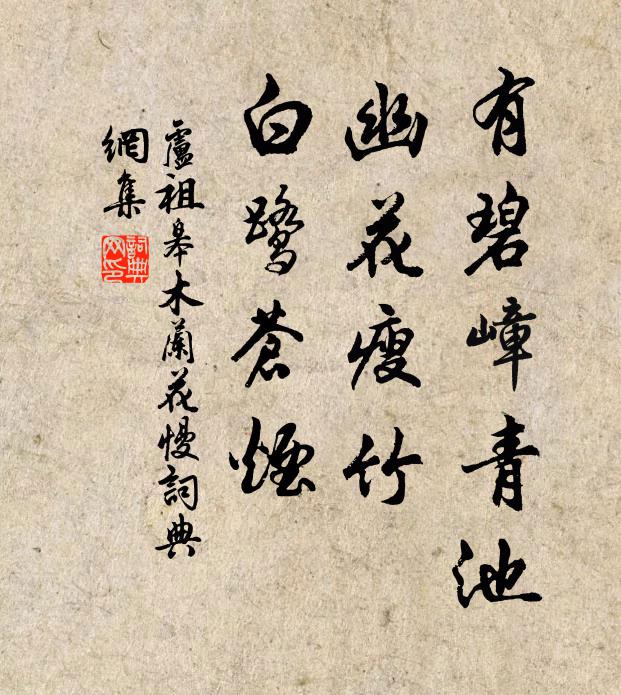 有碧嶂青池
幽花瘦竹
白鷺蒼煙
盧祖皋木蘭花慢詞典
網集
詞典
网印